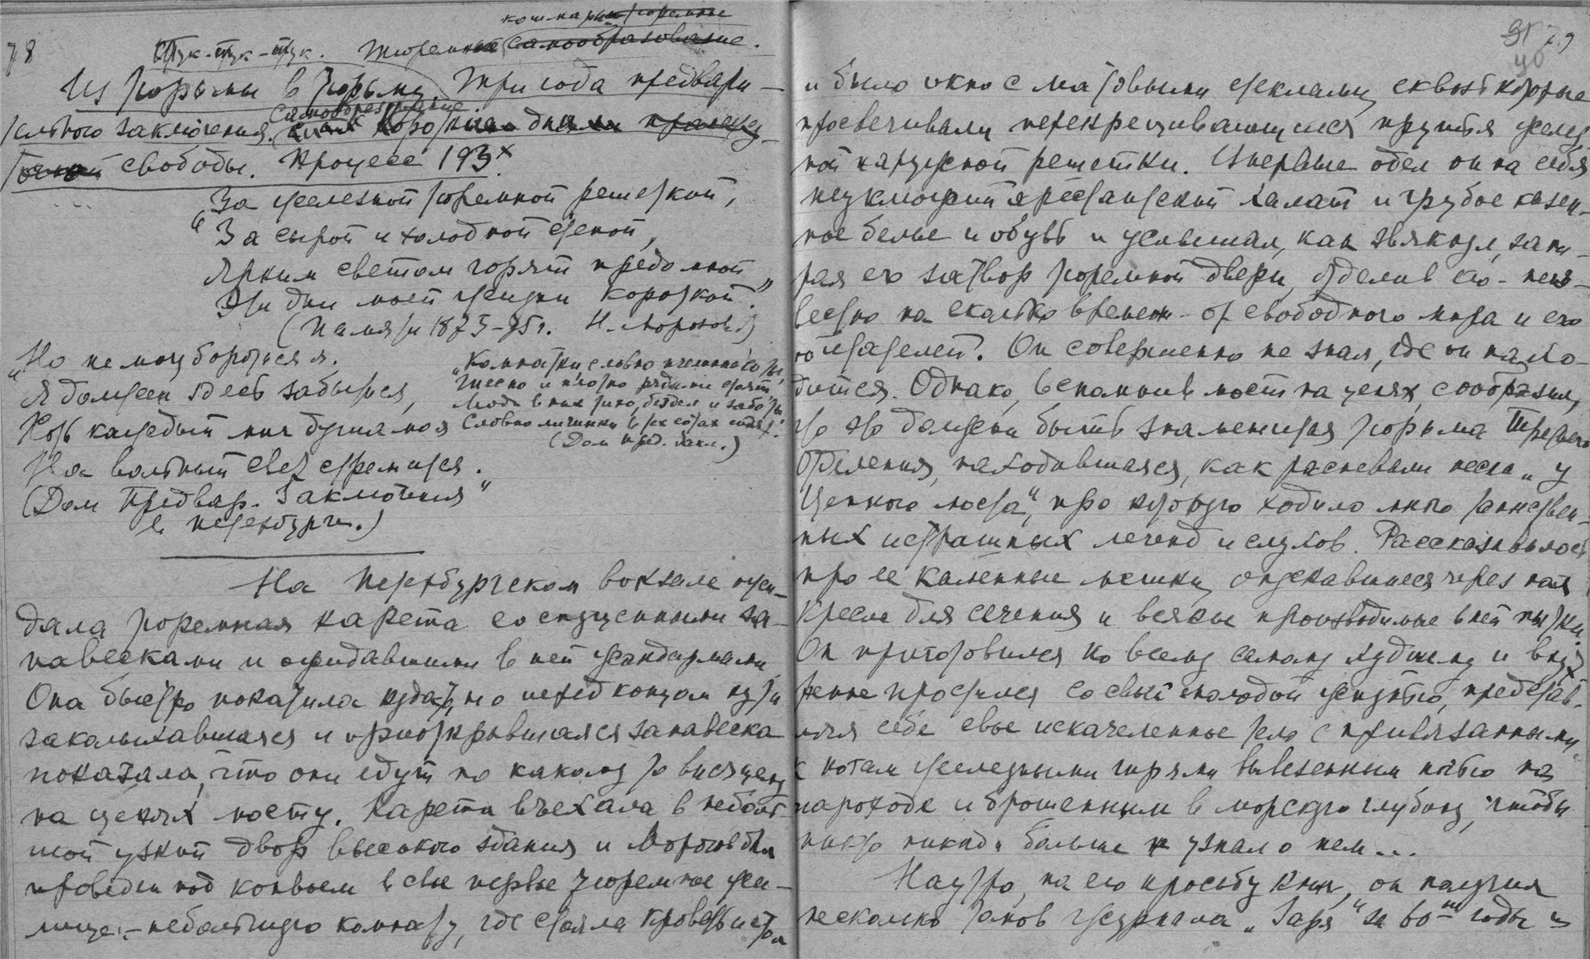 78
кошмары тюремные
Тук-тук-тук. Тюремные самообразование.
Из тюрьмы в тюрьму. Три года предвари-
самообразование.
тельного заключения. Короткие дни
свободы. Процесс 193х
"За железной тюремной решеткой,
За сырой и холодной стеной,
Ярким светом горят предо мной
Эти дни моей жизни короткой."
(Памяти 1873-75 г. Н. Морозов)
"Но не могу бороться я.
Я должен здесь забыться,
Хоть каждый миг душа моя
На вольный свет стремится."
(Дом Предвар. Заключения
в Петербурге.)
"Комнатки, словно пчелиные соты,
Тесно и плотно рядами стоят
Люди в них
Словно личинки в тех сотах сидят."
(Дом пред. закл.)
На Петербургском вокзале ожи-
дала тюремная карета со спущенными за-
навесками и ожидавшими в ней жандармами
Она быстро покатила куда-то и перед концом пути
заколыхавшаяся и приоткрывшаяся занавеска
показала, что они едут по какому то висящему
на цепях мосту. Карета въехала в неболь-
шой узкий двор высокого здания и Морозов был
проведен под конвоем в свое первое тюремное жи-
лище: - небольшую комнату, где стояла кровать и стол
79
40
и было окно с матовыми стеклами, сквозь которые
просвечивали перекрещивающиеся прутья желез-
ной наружной решетки. Впервые одел он на себя
неуклюжий арестантский халат и грубое казен-
ное белье и обувь и услышал, как звякнул, запи-
рая его затвор тюремной двери, отделив его - неиз-
вестно на сколько времени - от свободного мира и его
обитателей. Он совершенно не знал, где он нахо-
дится. Однако, вспомнив мост на цепях, сообразил,
что это должна быть знаменитая тюрьма Третьего
Отделения, находившаяся, как распевали песню "у
Цепного моста", про которую ходило много таинствен-
ных и страшных легенд и слухов. Рассказывалось
про ее каменные мешки, опускавшиеся через пол
кресла для сечения и всякие производимые в ней пытки.
Он приготовился ко всему самому худшему и внут-
ренне простился со своей молодой жизнью, представ-
ляя себе свое искалеченное тело с привязанными
к ногам железными гирями вывезенным на
пароходе и брошенным в морскую глубину, чтобы
никто никогда больше не узнал о нем...
Наутро, на его просьбу книг, он получил
несколько томов журнала "Заря" за 60-ые годы и